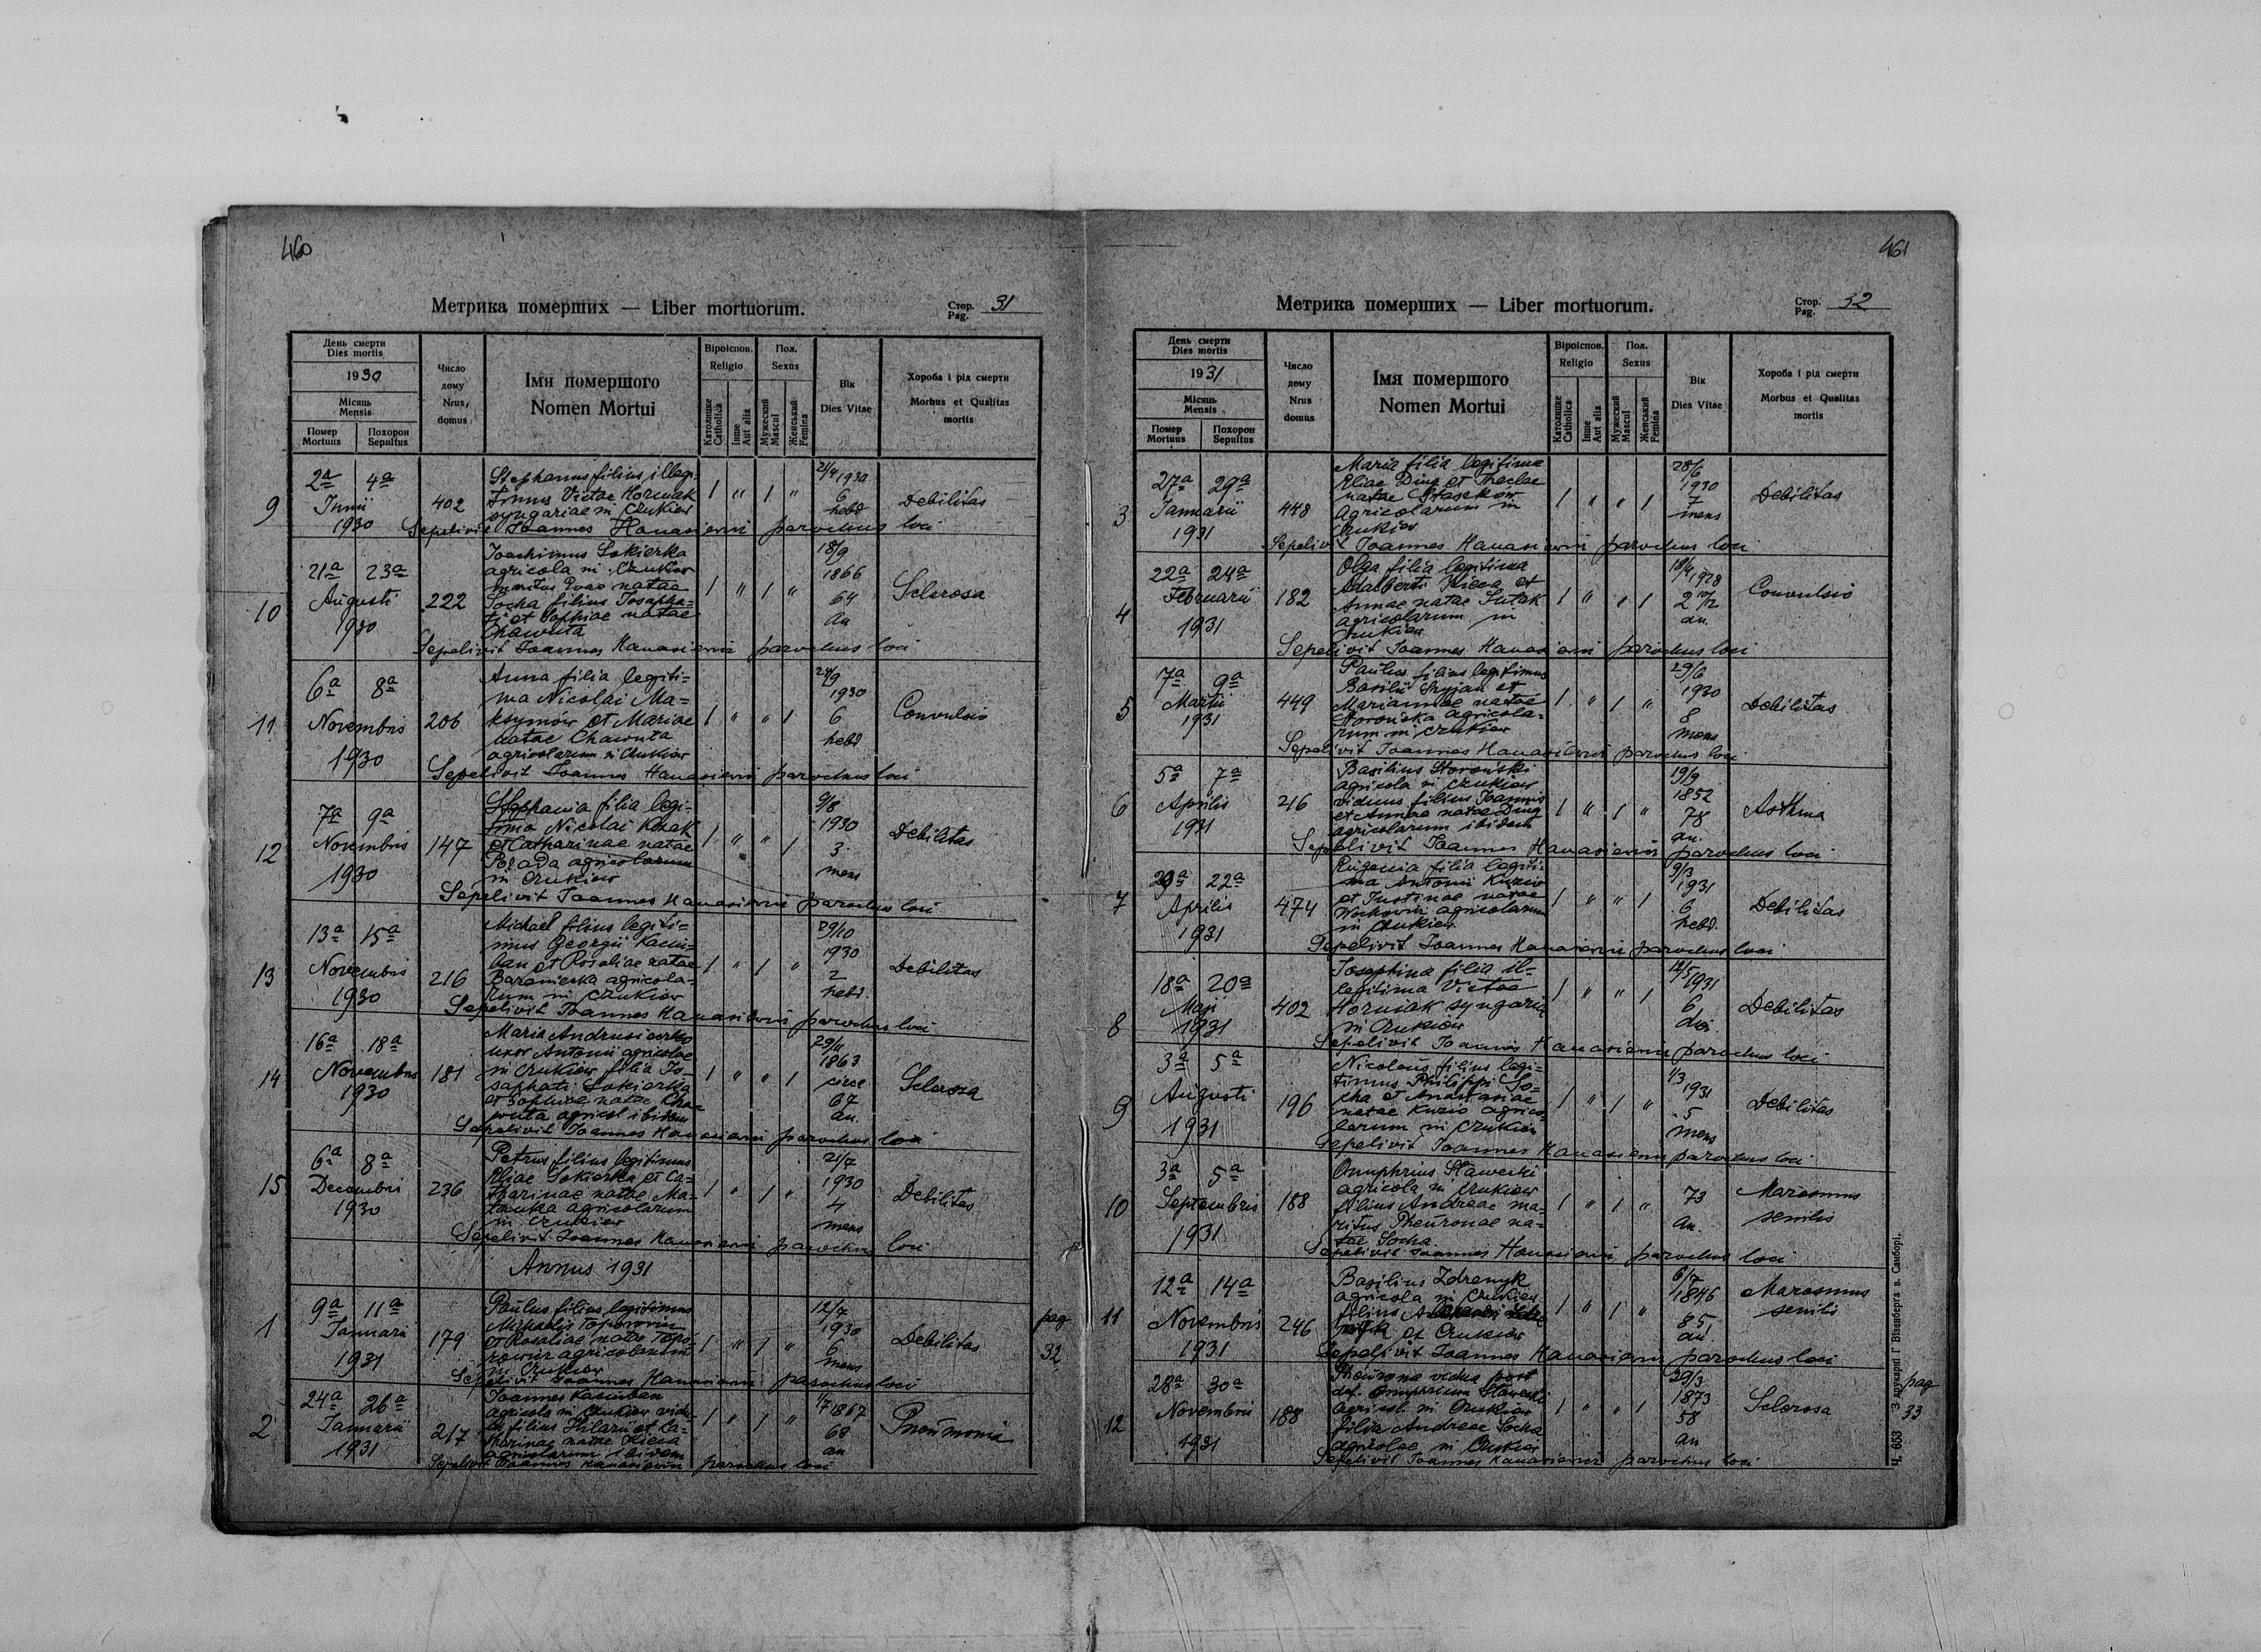 460
Метрика померших — Liber mortuorum.
Стор. Pag. 31
День смерти
Dies mortis
1930
Місяць
Mensis
Помер
Mortuus
Похорон
Sepultus
Число
дому
Nrus,
domus
Імя помершого
Nomen Mortui
Віроіспов.
Religio
Католицке
Catholica
Інше
Aut alia
Пол.
Sexus
Мужеский
Mascul
Женський
Femina
Вік
Dies Vitae
Хороба і рід смерти
Morbus et Qualitas
mortis
9
2a 4a
Junii
1930
402
Stephanus filius illegi-
timus Victae Horniak
syngariae in Czukiew
21/4 1930
6
hebd
Debilitas
Sepelivit Joannes Hanasiewicz parochus loci
10
21a 23a
Augusti
1930
222
Joachimus Sokierka
agricola in Czukiew
maritus Evae natae
Socha filius Josapha-
ti et Sophiae natae
Chawuta
18/9
1866
64
an
Sclerosa
Sepelivit Joannes Hanasiewicz parochus loci
11
6a 8a
Novembris
1930
206
Anna filia legiti-
ma Nicolai Ma-
ksymów et Mariae
natae Chawuta
agricolarum in Czukiew
24/9
1930
6
hebd
Convulsio
Sepelivit Joannes Hanasiewicz parochus loci
12
7a 9a
Novembris
1930
147
Stephania filia legi-
tima Nicolai Kozak
et Catharinae natae
Porada agricolarum
in Czukiew
9/8
1930
3
mens
Debilitas
Sepelivit Joannes Hanasiewicz parochus loci
13
13a 15a
Novembris
1930
216
Michael filius legiti-
mus Georgii Kaczu-
ban et Rosaliae natae
Baraniecka agricola-
rum in Czukiew
29/10
1930
2
hebd.
Debilitas
Sepelivit Joannes Hanasiewicz parochus loci
14
16a 18a
Novembris
1930
181
Maria
uxor Antonii agricolae
in Czukiew filia Jo-
saphati Sokierka
et Sophiae natae Cha-
wuta agricol ibidem
29/11
1863
circa
67
an.
Sclerosa
Sepelivit Joannes Hanasiewicz parochus loci
15
6a 8a
Decembris
1930
236
Petrus filius legitimus
Eliae Sokierka et Ca-
tharinae natae Ma-
agricolarum
in Czukiew
21/7
1930
4
mens
Debilitas
Sepelivit Joannes Hanasiewicz parochus loci
Annus 1931
1
9a 11a
Januarii
1931
179
Paulus filius legitimus
Michaelis Toporowicz
et Rosaliae natae Topo-
rowicz agricolarum
in Czukiew
12/7
1930
6
mens
Debilitas
pag
32
Sepelivit Joannes Hanasiewicz parochus loci
2
24a 26a
Januarii
1931
217
Joannes Kaczuban
agricola in Czukiew vidu-
us filius Hilarii et Ca-
tharinae natae
agricolarum ibidem
1/7 1867
63
an
Pneumonia
Sepelivit Joannes Hanasiewicz parochus loci
461
Метрика померших — Liber mortuorum.
Стор. Pag. 32
День смерти
Dies mortis
1931
Місяць
Mensis
Помер
Mortuus
Похорон
Sepultus
Число
дому
Nrus
domus
Імя помершого
Nomen Mortui
Віроіспов.
Religio
Католицке
Catholica
Інше
Aut alia
Пол.
Sexus
Мужеский
Mascul
Женський
Femina
Вік
Dies Vitae
Хороба і рід смерти
Morbus et Qualitas
mortis
3
27a 29a
Januarii
1931
448
Maria filia legitima
Eliae Ding et Theclae
natae Staszków
agricolarum in
Czukiew
28/6
1930
7
mens
Debilitas
Sepelivit Joannes Hanasiewicz parochus loci
4
22a 24a
Februarii
1931
182
Olga filia legitima
Adalberti et
Annae natae Sutak
agricolarum in
Czukiew
18/4 1928
2 10/12
an.
Convulsio
Sepelivit Joannes Hanasiewicz parochus loci
5
7a 9a
Martii
1931
449
Paulus filius legitimus
Basilii et
Mariannae natae
Storońska agricola-
rum in Czukiew
29/6
1930
8
mens
Debilitas
Sepelivit Joannes Hanasiewicz parochus loci
6
5a 7a
Aprilis
1931
216
Basilius Storoński
agricola in Czukiew
viduus filius Joannis
et Annae natae Ding
agricolarum ibidem
19/9
1852
78
an.
Asthma
Sepelivit Joannes Hanasiewicz parochus loci
7
20a 22a
Aprilis
1931
474
Eugenia filia legiti-
ma Antonii Kuzio
et Justinae natae
agricolarum
in Czukiew
9/3
1931
6
hebd.
Debilitas
Sepelivit Joannes Hanasiewicz parochus loci
8
18a 20a
Maji
1931
402
Josephina filia il-
legitima Victae
Horniak syngaria
in Czukiew
12/5 1931
6
Debilitas
Sepelivit Joannes Hanasiewicz parochus loci
9
3a 5a
Augusti
1931
196
Nicolaus filius legi-
timus Philippi So-
cha et Anastasiae
natae Kuzio agrico-
larum in Czukiew
1/3
1931
5
mens
Debilitas
Sepelivit Joannes Hanasiewicz parochus loci
10
3a 5a
Septembris
1931
188
Onuphrius Stawecki
agricola in Czukiew
filius Andreae ma-
ritus Pheuronae na-
tae Socha
73
an.
Marasmus
senilis
Sepelivit Joannes Hanasiewicz parochus loci
11
12a 14a
Novembris
1931
246
Basilius Zdrenyk
agricola in Czukiew
filius
et Czukiew
6/7
1846
85
an
Marasmus
senilis
Sepelivit Joannes Hanasiewicz parochus loci
12
28a 30a
Novembris
1931
188
Pheurona vidua post
def. Onuphrium Stawecki
agricol. in Czukiew
filia Andreae Socha
agricolae in Czukiew
29/3
1873
58
an
Sclerosa
pag
33
Sepelivit Joannes Hanasiewicz parochus loci
Ч. 653 З друкарні Г Візенберга в. Самборі.